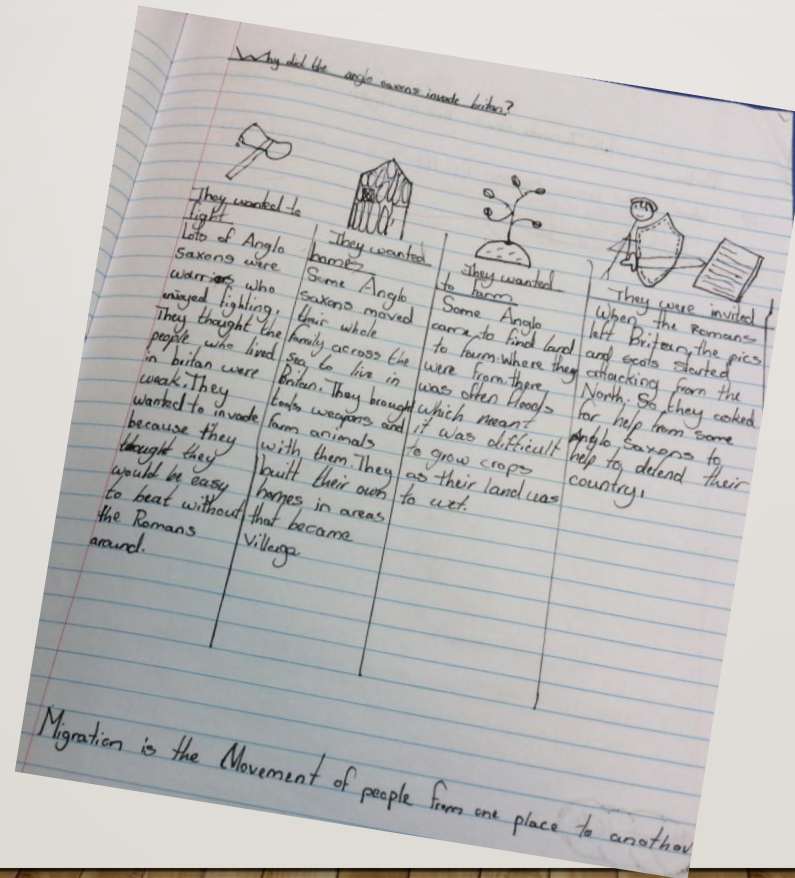 Why did the anglo saxons invade britan?
They wanted to
fight
Loto of Anglo
saxons were
warriors who
enjoyed fighting.
They thought the
people who lived
in britan were
weak. They
wanted to invade
because they
thought they
would be easy
to beat without
the Romans
around.
They wanted
homes
Some Anglo
saxons moved
their whole
family across the
sea to live in
Britan. They brought
tools weapons and
farm animals
with them. They
built their own
homes in areas
that became
Villerga
They wanted
to farm
Some Anglo
came to find land
to farm. Where they
were from there
was often floods
which meant
it was difficult
to grow crops
as their land was
to wet.
They were invited
When the Romans
left Britan, the pics
and scots started
attacking from the
North. So they asked
for help from some
Anglo Saxons to
help to defend their
country.
Migration is the Movement of people from one place to anothor